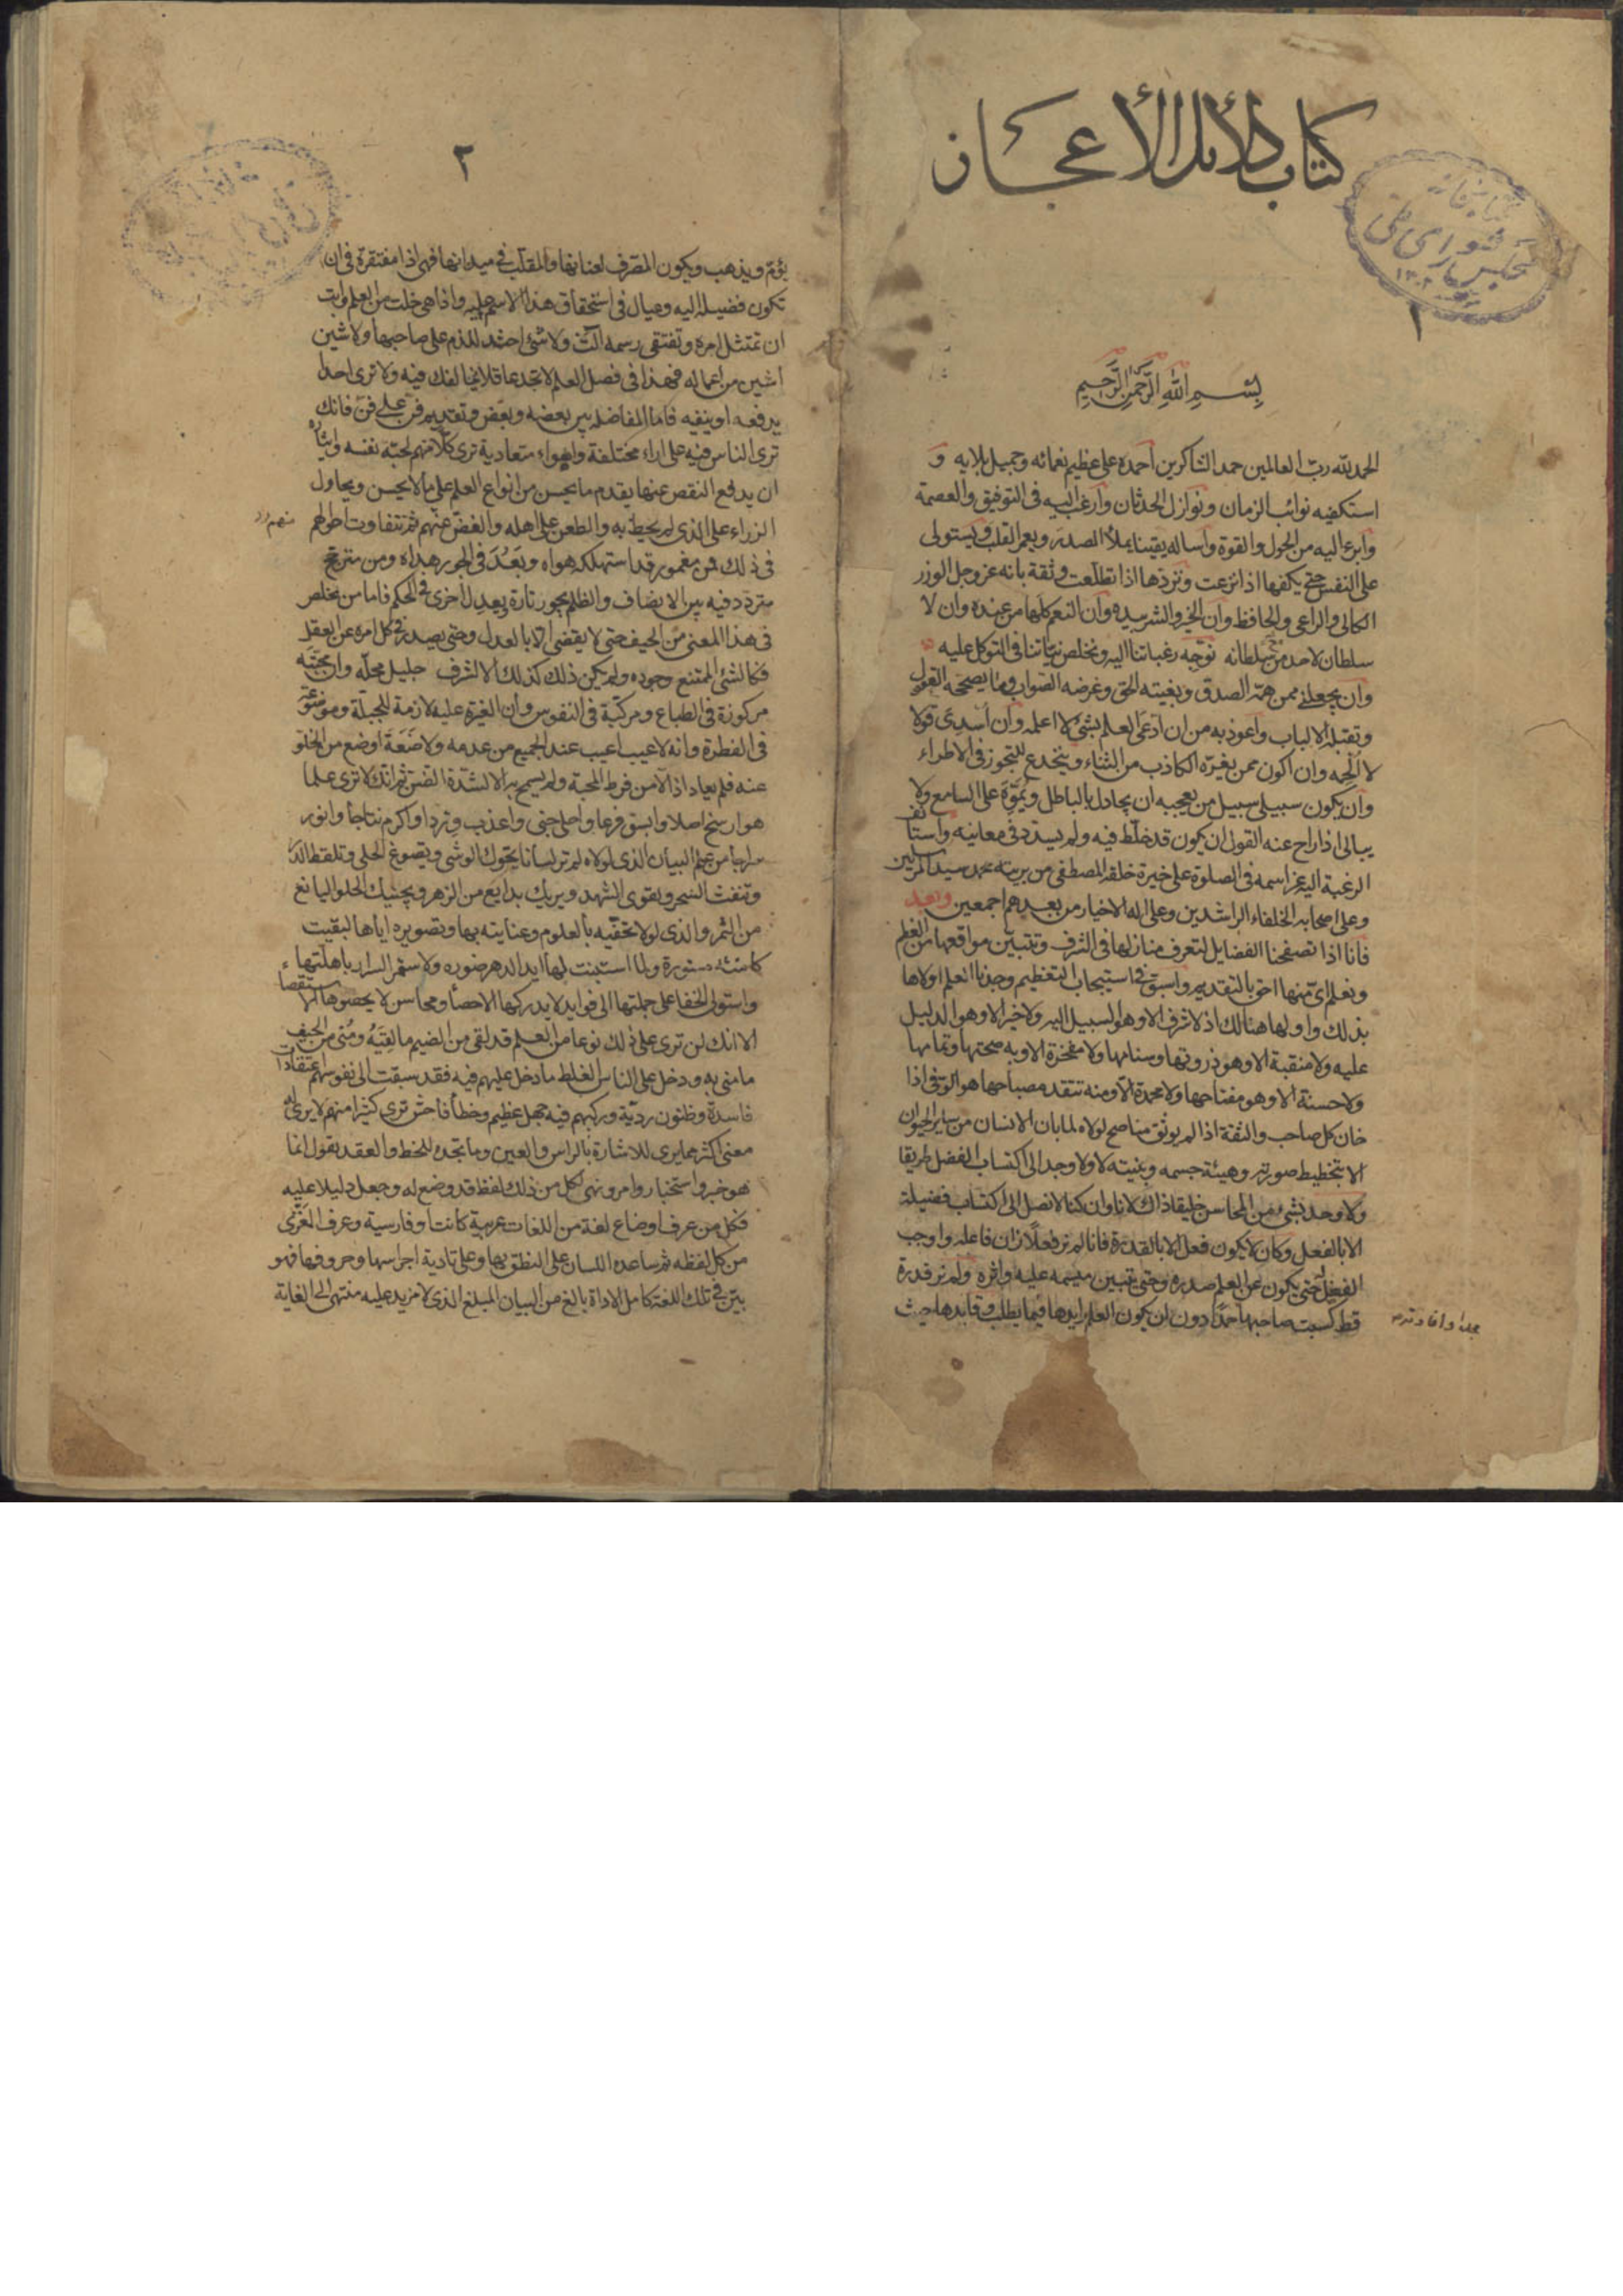 كتاب دلائل الأعجاز
١
بِسْمِ اللهِ الرَّحْمنِ الرَّحِيمِ
الحمد لله ربّ العالمين حمد الشاكرين أحمده على عظيم نعمائه وجميل بلايه و
استكفيه نوائب الزمان ونوازل الحدثان وأرغب اليه فى التوفيق والعصمة
وأبرء اليه من الحول والقوة وأساله يقينا يملأ الصدر ويعمر القلب ويستولى
على النفس حتى يكفها اذا نزعت ويردّها اذا تطلّعت وثقة بانه عز وجل الوزر
الكالى والراعى والحافظ وأن الخير والشر بيده وأن النعم كلها من عنده وان لا
سلطان لاحد مع سلطانه نوجّه رغباتنا اليه ونخلص نيّاتنا فى التوكل عليه
وأن يجعلنى ممن همّه الصدق وبغيته الحق وغرضه الصواب وما يصححه العقول
وتقبله الالباب وأعوذ به من ان ادّعى العلم بشئ لا اعلمه وأن أسدى قولا
لا الحمه وان اكون ممن يغرّه الكاذب من الثناء وينخدع للمتجوز فى الاطراء
وأن يكون سبيلى سبيل من يعجبه ان يجادل بالباطل ويموّه على السامع ولا
يبالى اذا راج عنه القول ان يكون قد خلّط فيه ولم يسدد فى معانيه وأستأنف
الرغبة اليه عز اسمه فى الصلوة على خيرة خلقه المصطفى من بريته محمد سيد المرسلين
وعلى اصحابه الخلفاء الراشدين وعلى اله الاخيار من بعدهم اجمعين وبعد
فانا اذا تصفحنا الفضايل لنعرف منازلها فى الشرف ونتبيّن مواقعها من العظم
ونعلم اىّ منها احق بالتقديم واسبق فى استيجاب التعظيم وجدنا العلم اولاها
بذلك واولها هنالك اذ لا شرف الا وهو السبيل اليه ولا خير الا وهو الدليل
عليه ولا منقبة الا وهو ذروتها وسنامها ولا مفخرة الا وبه صحتها وتمامها
ولا حسنة الا وهو مفتاحها ولا محمدة الا ومنه تتقد مصباحها هو الوفى اذا
خان كل صاحب والثقة اذا لم يوثق بناصح لولاه لما بان الانسان من ساير الحيوان
الا بتخطيط صورته وهيئة جسمه وبنيته لا ولا وجد الى اكتساب الفضل طريقا
ولا وجد بشئ من المحاسن خليقا ذاك لانا وان كنا لا نصل الى اكتساب فضيلة
الا بالفعل وكان لا يكون فعل الا بالقدرة فانا لم نر فعلا زان فاعله واوجب
الفضل له حتى يكون عن العلم صدره وحتى تتبين ميسمه عليه واثره ولم نر قدرة
قط كسبت صاحبها حمدا دون ان يكون العلم رايدها فيما يطلب وقايدها حيث
٢
يؤمّ ويذهب ويكون المصرف لعنانها والمقلّب فى ميدانها فهى اذا مفتقرة فى ان
تكون فضيلة اليه وعيال فى استحقاق هذا الاسم عليه واذا هى خلت من العلم وابت
ان تمتثل امره وتقتفى رسمه الت ولا شئ احشد للذم على صاحبها ولا شين
اشين من اعماله فهذا فى فضل العلم لا تجد عاقلا يخالفك فيه ولا ترى احدا
يدفعه او ينفيه فاما المفاضلة بين بعضه وبعض وتقديم فن على فن فانك
ترى الناس فيه على اراء مختلفة واهواء متعادية ترى كلّا منهم لحبّه نفسه وايثاره
ان يدفع النقص عنها يقدم ما يحسن من انواع العلم على ما لا يحسن ويحاول
الزراء على الذى لم يحيط به والطعن على اهله والغضّ منهم ثم تتفاوت احوالهم
فى ذلك فمن مغمور قد استهلكه هواه وبعد فى الجور مداه ومن مترجح
متردد فيه بين الانصاف والظلم يجور تارة ويعدل اخرى فى الحكم فاما من يخلص
فى هذا المعنى من الحيف حتى لا يقضى الا بالعدل وحتى يصدر فى كل امره عن العقل
فكالشئ الممتنع وجوده ولم يكن ذلك كذلك الا لشرف جليل محلّه وان محبّته
مركوزة فى الطباع ومركّبة فى النفوس وأن الغيرة عليه لازمة للجبلّة وموضوعة
فى الفطرة وانه لا عيب اعيب عند الجميع من عدمه ولا ضَعَة اوضع من الخلو
عنه فلم يعاد اذا الا من فرط المحبة ولم يسمح به الا لشدّة الضن ثم انك لا ترى علما
هو ارسخ اصلا وابسق فرعا واحلى جنى واعذب وردا واكرم نتاجا وانور
سراجا من علم البيان الذى لولاه لم تر لسانا يحوك الوشى ويصوغ الحلى وتلفظ الدر
وتنفث السحر ويقرى الشهد ويريك بدايع من الزهر ويجنيك الحلو اليانع
من الثمر والذى لولا تحفّيه بالعلوم وعنايته بها وتصويره اياها لبقيت
كامنة مستورة ولما استبنت لها ابد الدهر صوره ولاستمر السرار باهلّتها
واستولى الخفا على جملتها الى فوايد لا يدركها الاحصا ومحاسن لا يحصرها الاستقصا
الا انك لن ترى على ذلك نوعا من العلم قد لقى من الضيم ما لقيَهُ ومُنى من الحيف
ما منى به ودخل على الناس الغلط ما دخل عليهم فيه فقد سبقت الى نفوسهم اعتقادات
فاسدة وظنون ردّية وركبهم فيه جهل عظيم وخطأ فاحش ترى كثيرا منهم لا يرى له
معنى اكثر مما يرى للاشارة بالراس والعين وما تجده للخط والعقد يقول انما
هو خبر واستخبار وامر ونهى لكل من ذلك لفظ قد وضع له وجعل دليلا عليه
فكل من عرف اوضاع لغة من اللغات عربية كانت او فارسية وعرف المغزى
من كل لفظه ثم ساعده اللسان على النطق بها وعلى تادية اجراسها وحروفها فهو
بيّن فى تلك اللغة كامل الاداة بالغ من البيان المبلغ الذى لا مزيد عليه منتهى الى الغاية